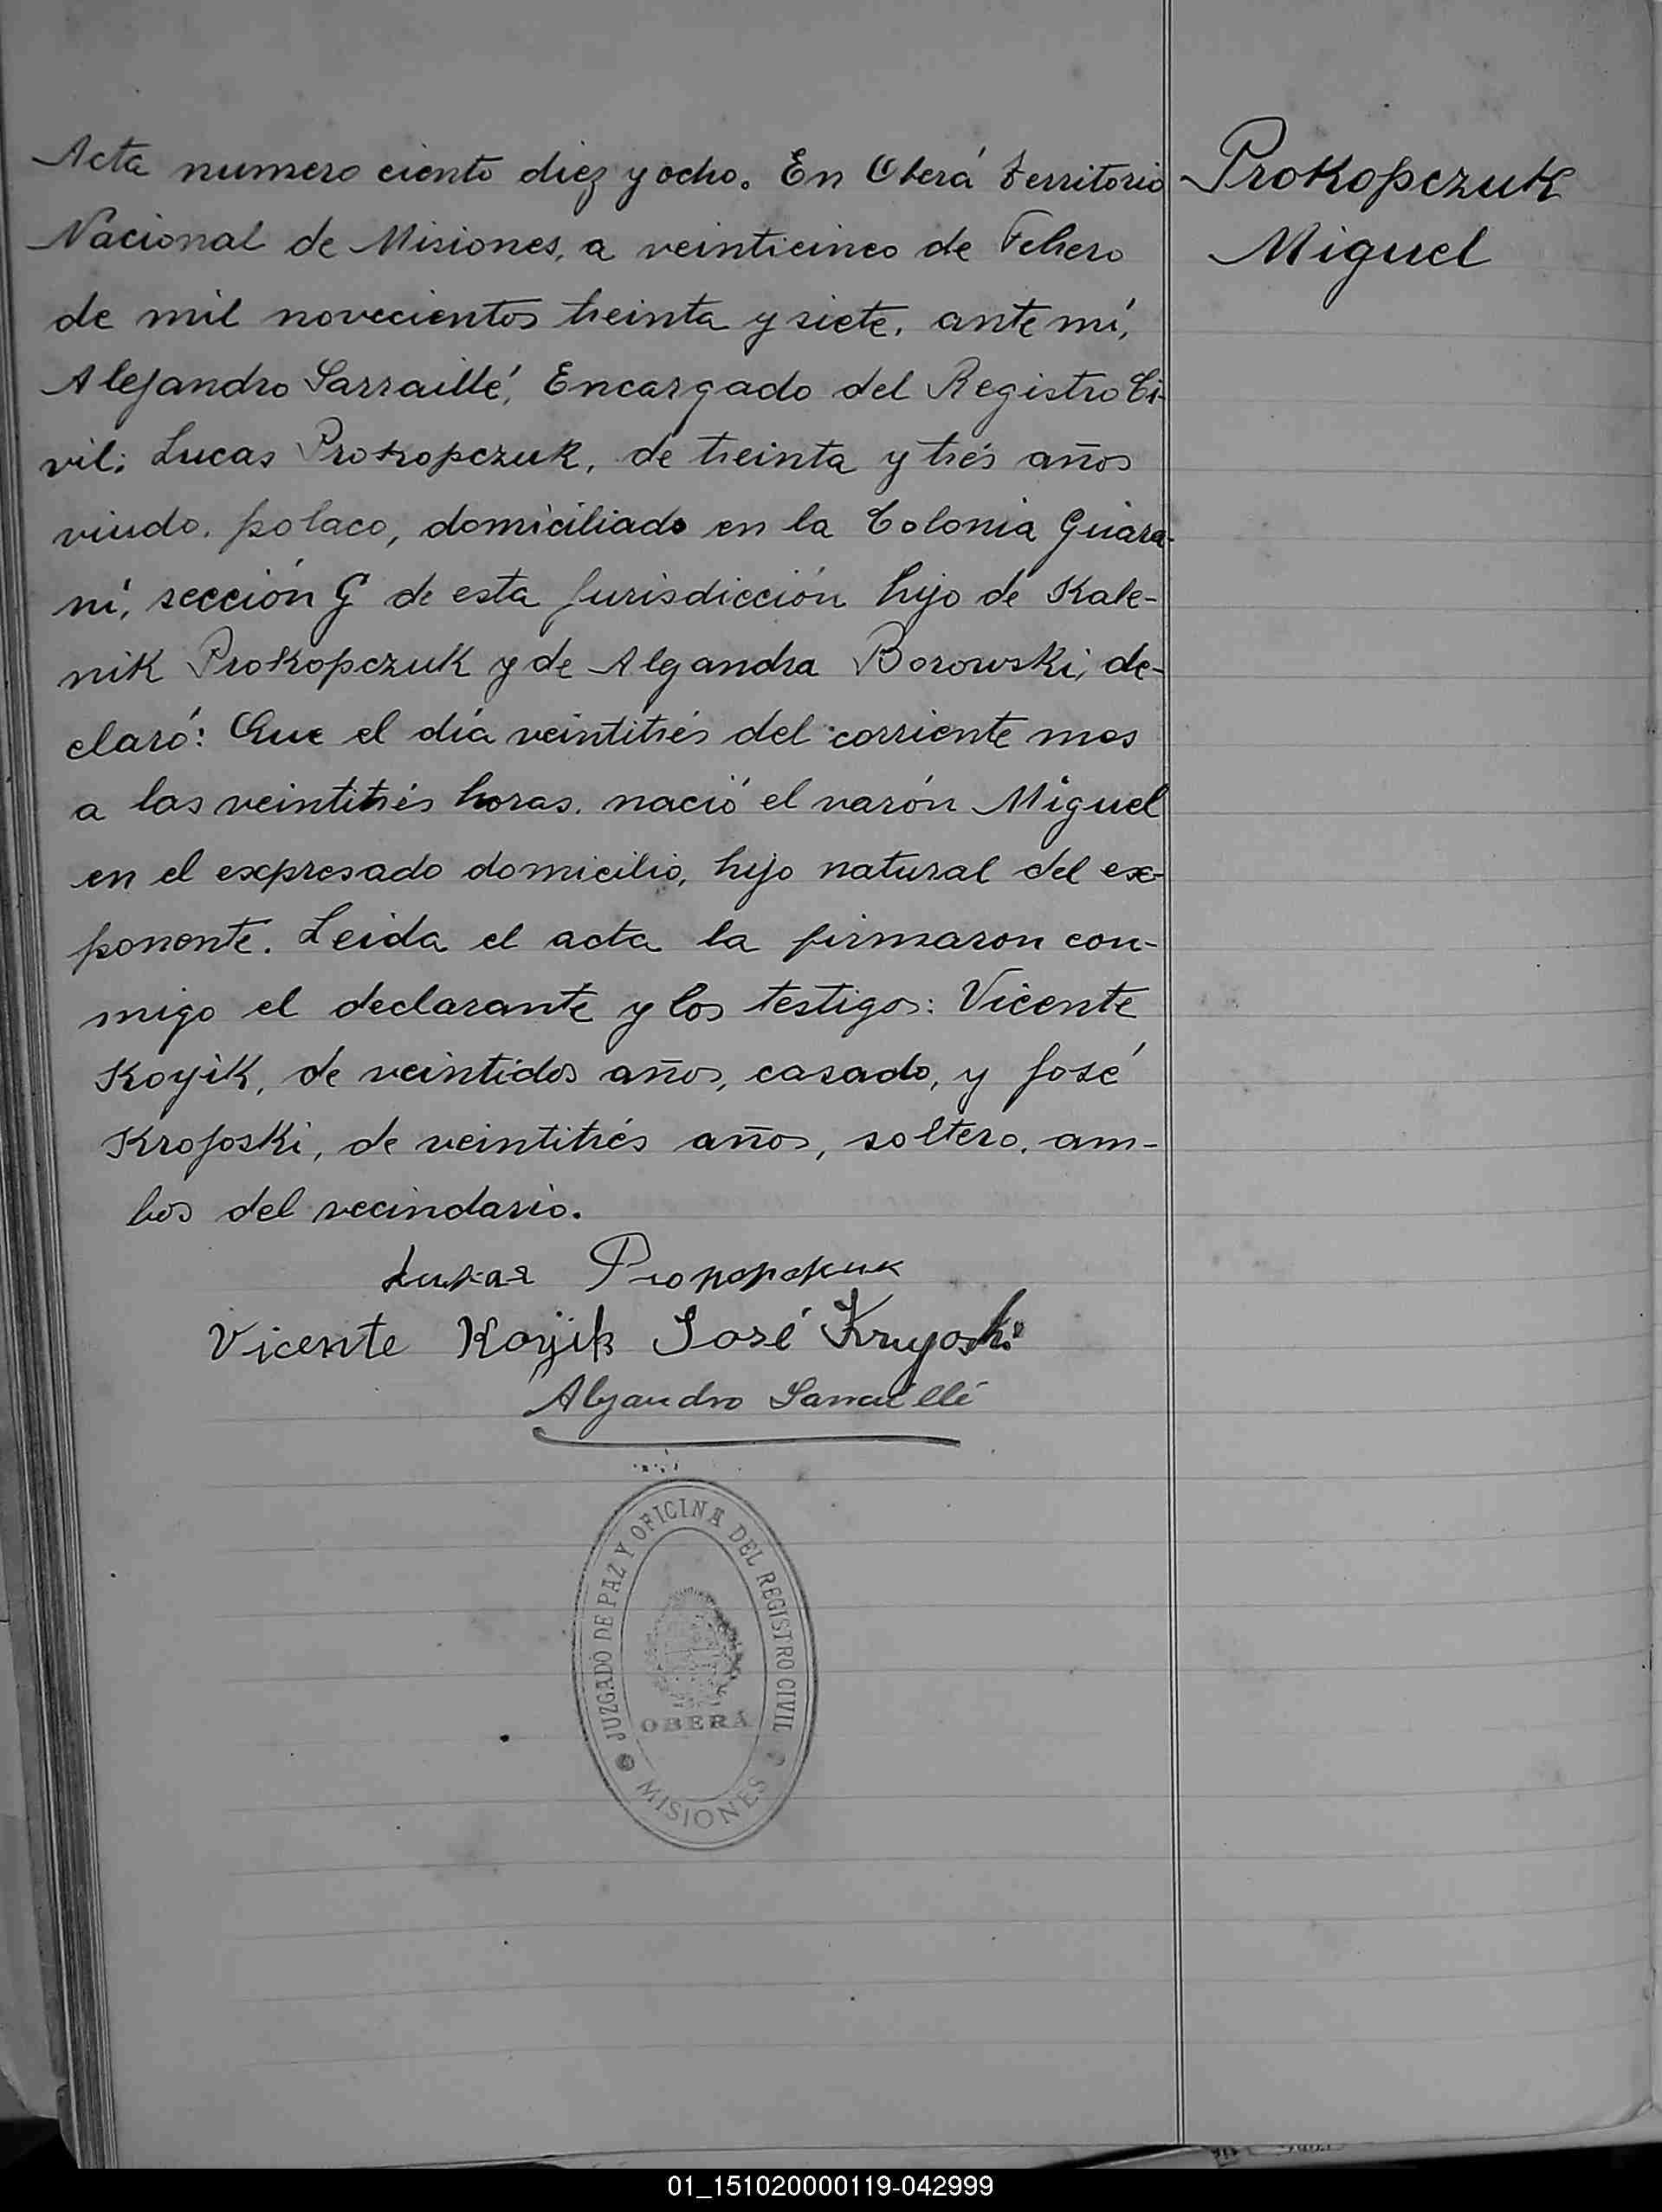 Acta numero ciento diez y ocho. En Oberá Territorio
Nacional de Misiones, a veinticinco de Febrero
de mil novecientos treinta y siete, ante mí,
Alejandro Sarraillé, Encargado del Registro Ci-
vil: Lucas Prokopczuk, de treinta y trés años
viudo, polaco, domiciliado en la Colonia Guara-
ní, sección G de esta Jurisdicción hijo de Kale-
nik Prokopczuk y de Alejandra Borowski, de-
claró: Que el día veintitrés del corriente mes
a las veintitrés horas, nació el varón Miguel
en el expresado domicilio, hijo natural del ex-
ponente. Leida el acta la firmaron con-
migo el declarante y los testigos: Vicente
Koyik, de veintidos años, casado, y José
Krojoski, de veintitrés años, soltero, am-
bos del vecindario.
Prokopczuk
Miguel
Vicente Koyik José Kruyoski
Alejandro Sarraillé
JUZGADO DE PAZ Y OFICINA DEL REGISTRO CIVIL
OBERÁ
MISIONES
01_151020000119-042999